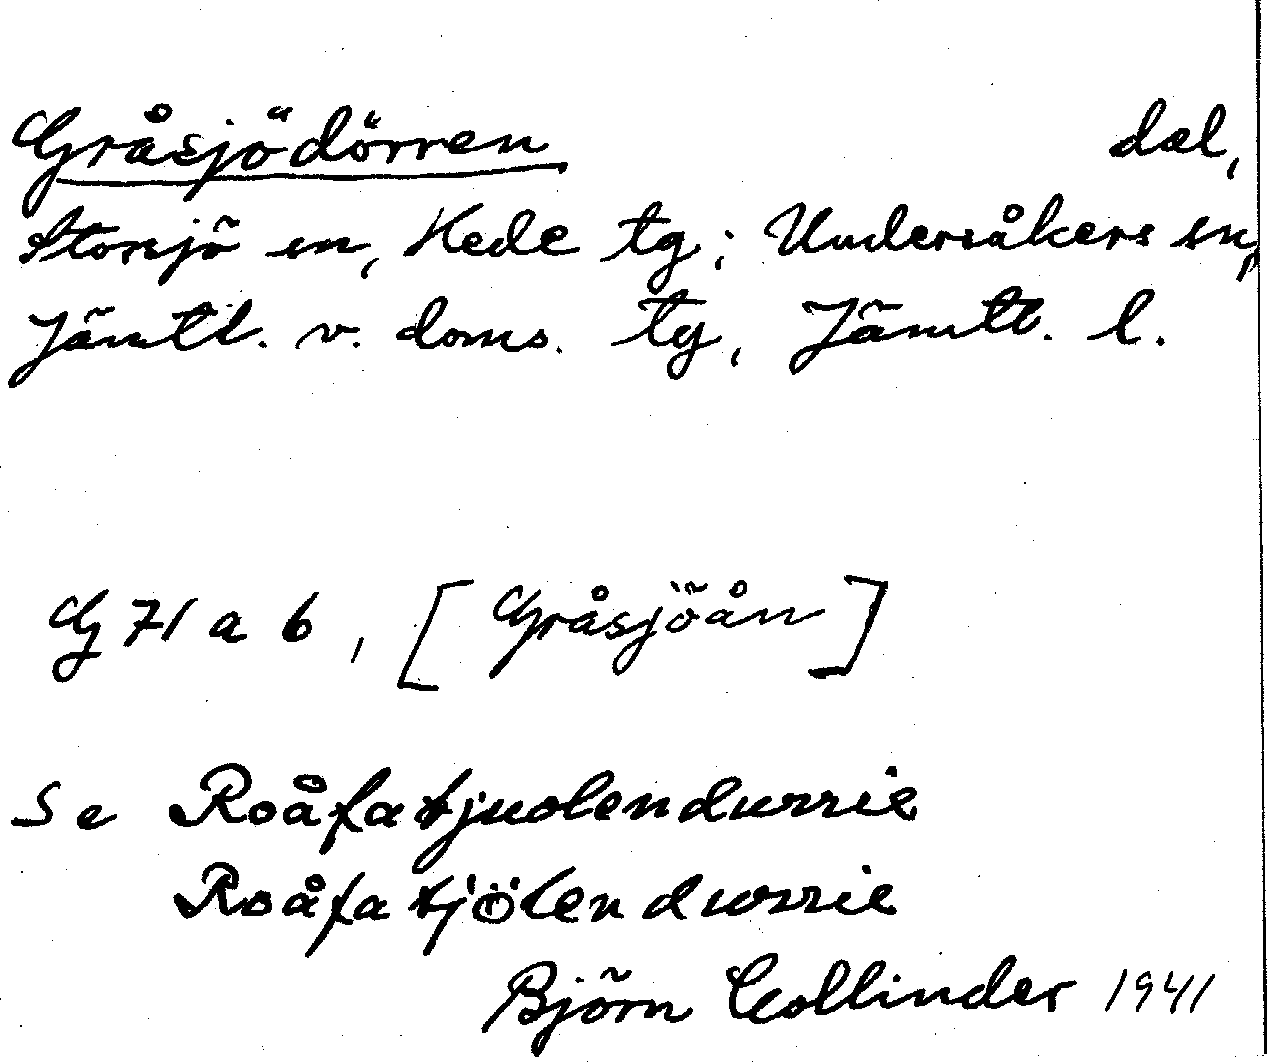 Gråsjödörren dal,
Storsjö sn, Hede tg; Undersåkers sn,
Jämtl. v. doms. tg, Jämtl. l.
G 71 a b, [Gråsjöån]
Se Roåfatjuolendurrie
Roåfatjölendurrie
Björn Collinder 1941